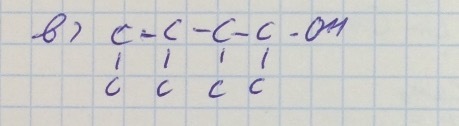 в) C - C - C - C - OH
| | | |
C C C C